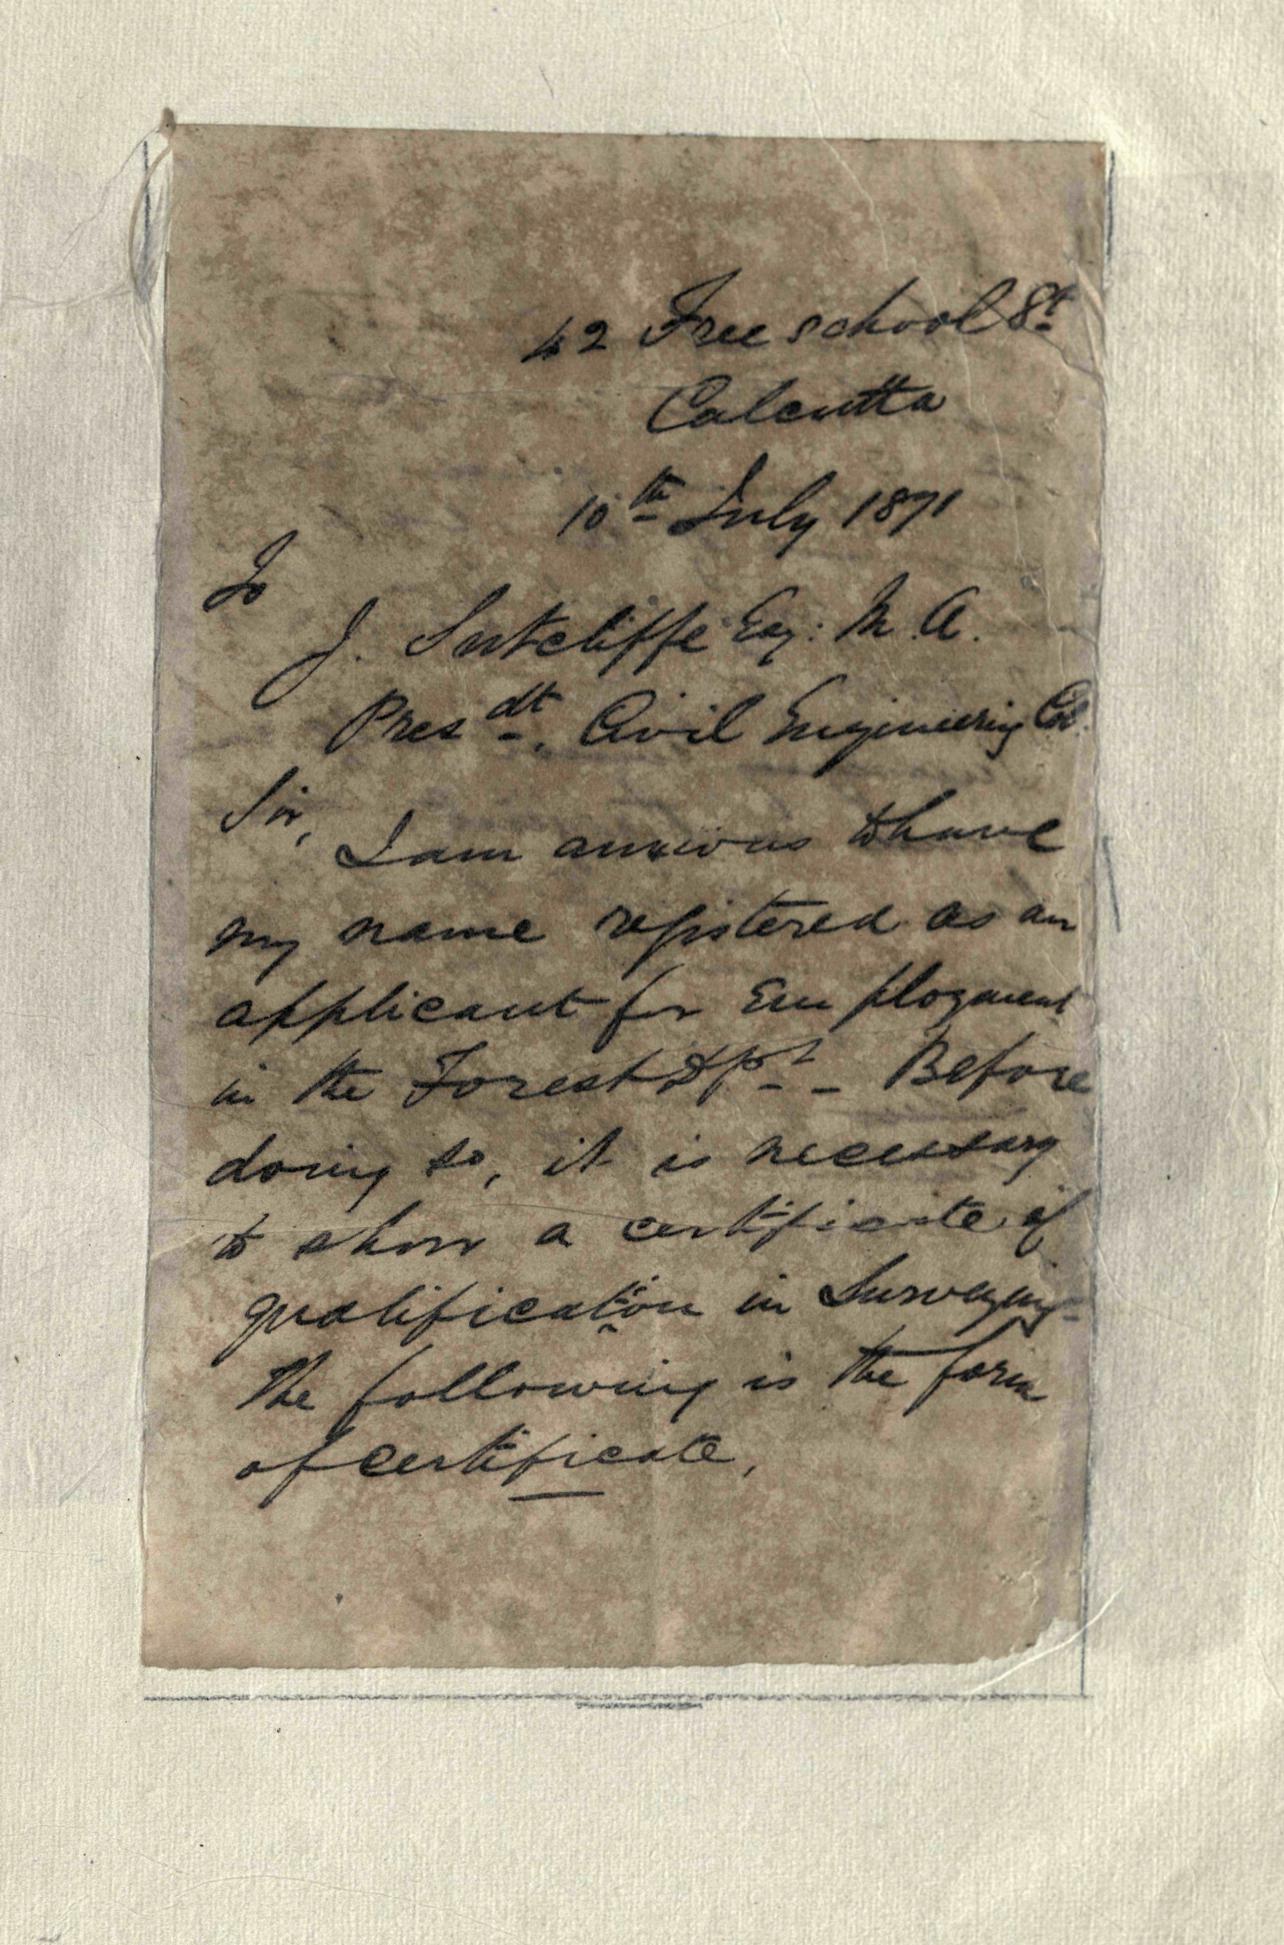 42 Free school St
Calcutta
10th July 1871
To
J. Sutcliffe Esq: M.A.
Presdt. Civil Engineering Col.
Sir,
I am anxious to have
my name registered as an
applicant for Employment
in the Forest Dpt - Before
doing so, it is necessary
to show a certificate of
qualification in Surveying -
The following is the form
of certificate.